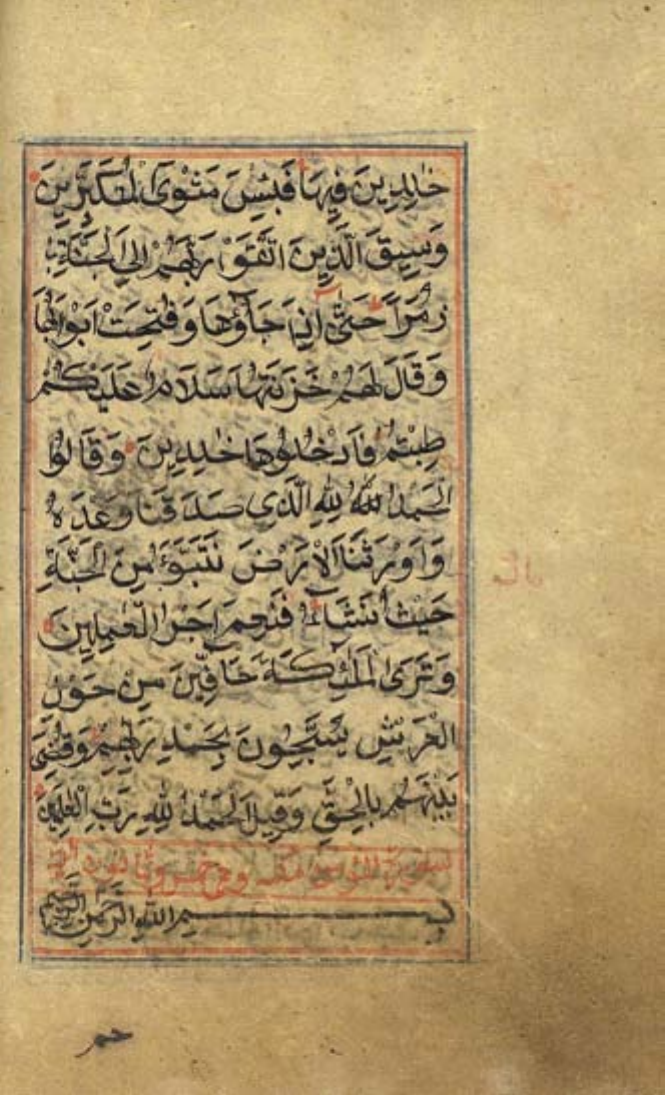 خٰلِدِينَ فِيهَا فَبِئْسَ مَثْوَى الْمُتَكَبِّرِينَ
وَسِيقَ الَّذِينَ اتَّقَوْا رَبَّهُمْ اِلَى الْجَنَّةِ
زُمَرًا حَتَّى اِذَا جَاؤُهَا وَفُتِحَتْ اَبْوَابُهَا
وَقَالَ لَهُمْ خَزَنَتُهَا سَلَامٌ عَلَيْكُمْ
طِبْتُمْ فَادْخُلُوهَا خٰلِدِينَ وَقَالُوا
الْحَمْدُ لِلّٰهِ الَّذِى صَدَقَنَا وَعْدَهُ
وَاَوْرَثَنَا الْاَرْضَ نَتَبَوَّءُ مِنَ الْجَنَّةِ
حَيْثُ نَشَآءُ فَنِعْمَ اَجْرُ الْعٰمِلِينَ
وَتَرَى الْمَلٰئِكَةَ حَآفِّينَ مِنْ حَوْلِ
الْعَرْشِ يُسَبِّحُونَ بِحَمْدِ رَبِّهِمْ وَقُضِىَ
بَيْنَهُمْ بِالْحَقِّ وَقِيلَ الْحَمْدُ لِلّٰهِ رَبِّ الْعٰلَمِينَ
بِسْمِ اللّٰهِ الرَّحْمٰنِ الرَّحِيمِ
حم